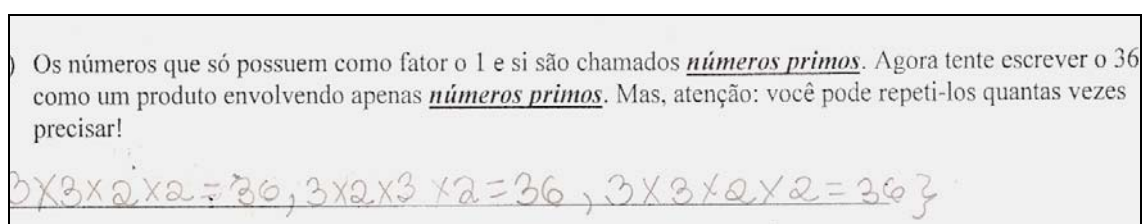 ) Os números que só possuem como fator o 1 e si são chamados números primos. Agora tente escrever o 36
como um produto envolvendo apenas números primos. Mas, atenção: você pode repeti-los quantas vezes
precisar!
3X3X2X2=36, 3X2X3X2=36, 3X3X2X2=36}